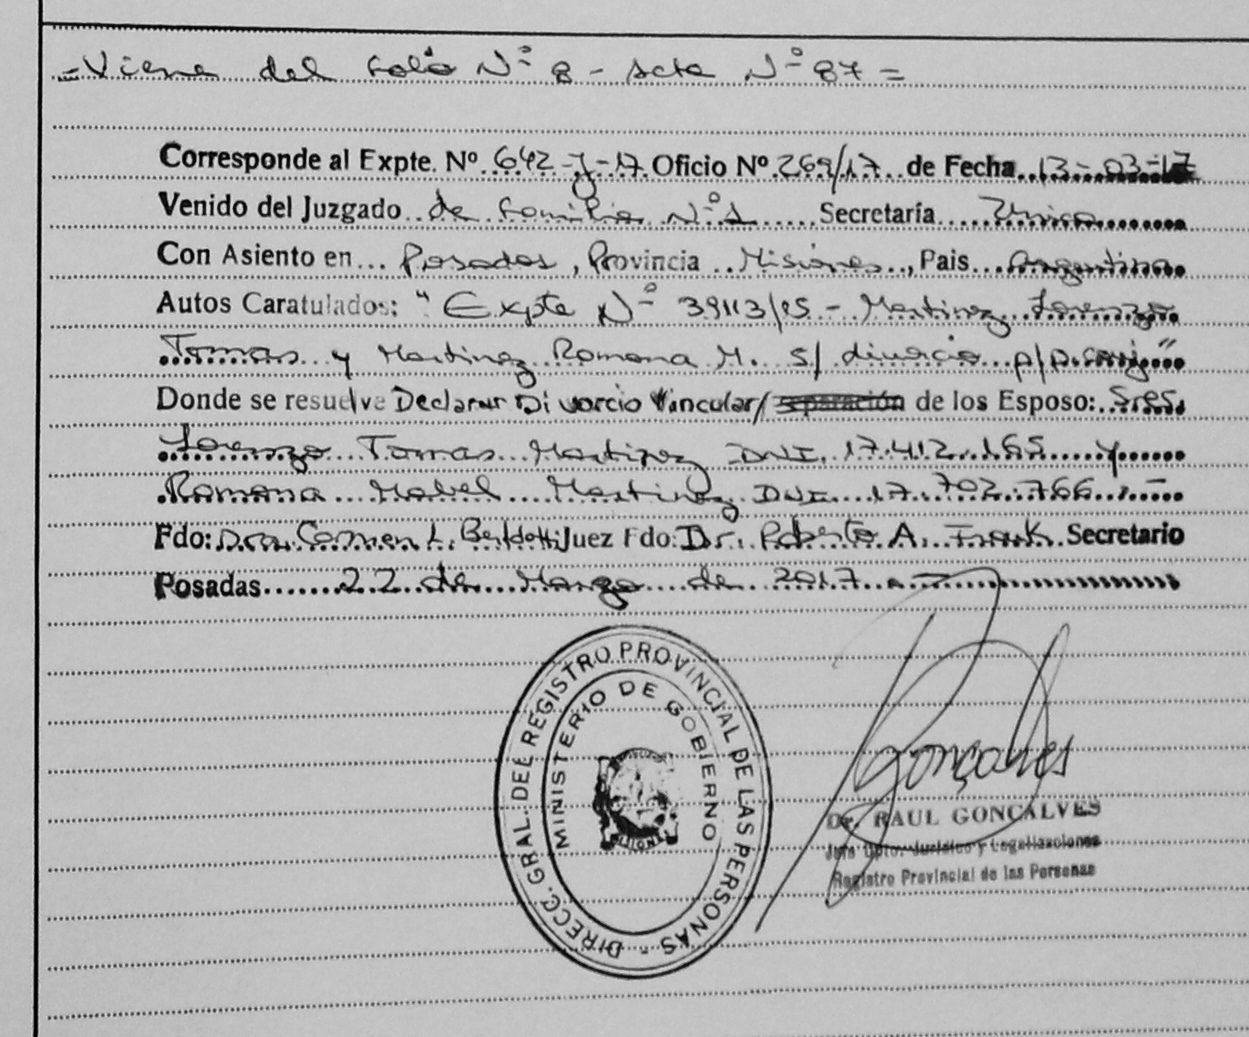 =Viene del folio Nº 8 - Acta Nº 87=
Corresponde al Expte. Nº 642-J-17 Oficio Nº 269/17 de Fecha 13-03-17
Venido del Juzgado de Familia Nº 1 Secretaría Única
Con Asiento en Posadas, Provincia Misiones, Pais Argentina
Autos Caratulados: "Expte Nº 39113/05 - Martinez Lorenzo
Tomas y Martinez Romona M. s/ divorcio p/p.conj."
Donde se resuelve Declarar Divorcio Vincular/separación de los Esposo: Sres.
Lorenzo Tomas Martinez DNI. 17.412.165 y
Ramona Mabel Martinez DNI. 17.702.766.-
Fdo: Dra. Carmen L. Juez Fdo: Dr. Roberto A. Frank Secretario
Posadas 22 de Marzo de 2017.-
DIRECC. GRAL. DEL REGISTRO PROVINCIAL DE LAS PERSONAS -
MINISTERIO DE GOBIERNO
MISIONES
Gonçalves
Dr. RAUL GONÇALVES
Jefe Dpto. Jurídico y Legalizaciones
Registro Provincial de las Personas